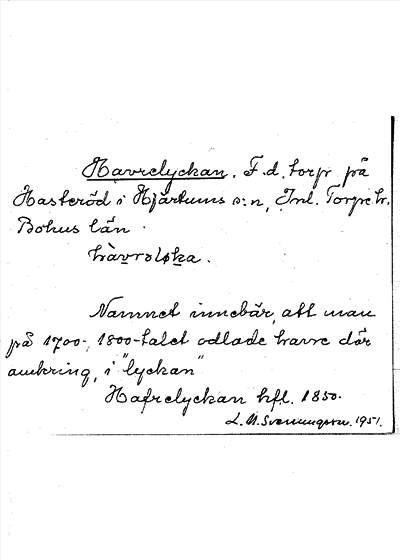 Havrelyckan. F.d. torp på
Hasteröd i Hjärtums s:n, Inl. Torpe hr.
Bohus län.
hàvrəløka.
Namnet innebär, att man
på 1700-, 1800-talet odlade havre där
omkring, i "lyckan"
Hafrelyckan hfl. 1850.
L. M. Svenungsson. 1951.